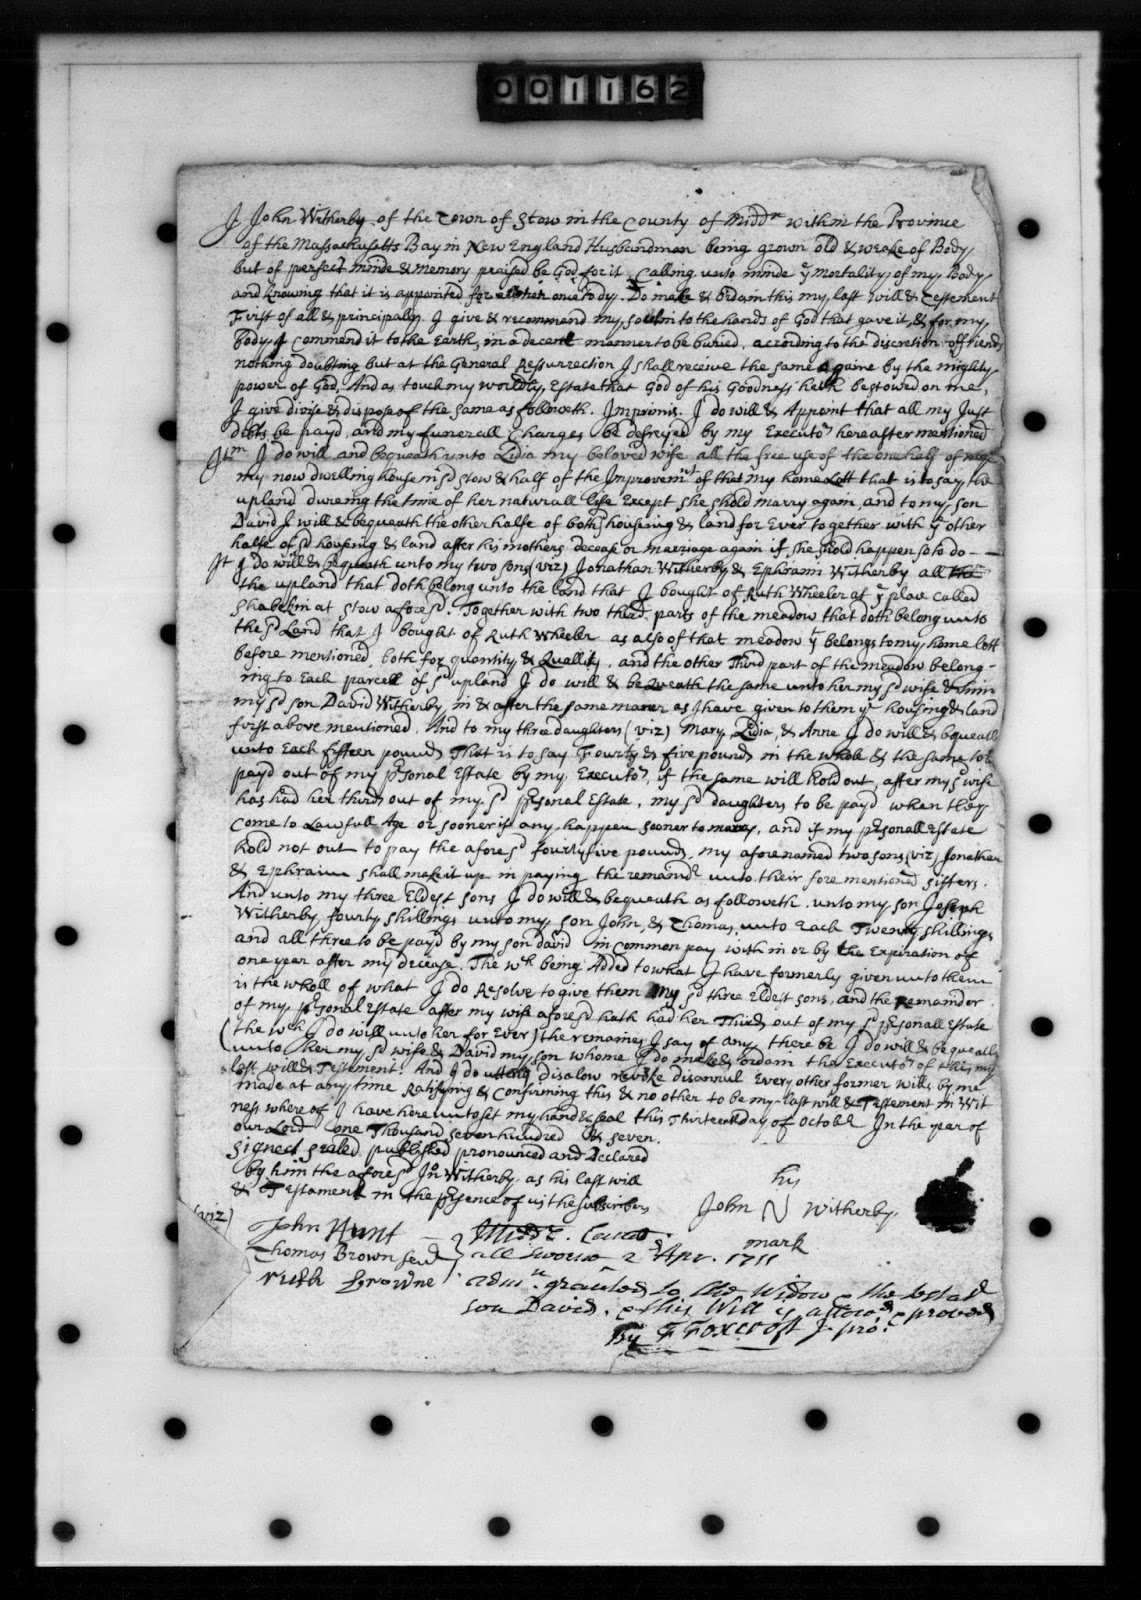 001162
I John Witherby of the Town of Stow in the County of Midd^x within the Province
of the Massachusetts Bay in New England Husbandman being grown old & weake of Body
but of perfect minde & memory praised be God for it Calling unto minde y^e Mortality of my Body
and knowing that it is appointed for once to dy. Do make & ordain this my last will & Testement
First of all & principally. I give & recommend my soul into the hands of God that gave it, & for my
Body I commend it to the Earth, in a decent manner to be buried, according to the discretion of friends
nothing doubting but at the General Ressurrection I shall receive the same againe by the mighty
power of God, And as touch my worldly Estate that God of his Goodness hath bestowed on me,
I give divise & dispose of the same as followeth. Imprimis. I do will & Appoint that all my Just
debts be payd, and my funerall Charges be defreyed by my Executo^rs hereafter mentioned
It^m I do will and bequeath unto Lidia my beloved wife all the free use of the one halfe of
my now dwelling house in s^d stow & half of the Improvem^nt of that my home Lott that is to say, the
upland dureing the time of her naturall life Except she shold marry again, and to my son
David I will & bequeath the other halfe of both housing & land for Ever together with y^e other
halfe of s^d housing & land after his mothers decease or marriage again if she shold happen so to do
It I do will & bequeath unto my two sons (viz) Jonathan Witherby & Ephraim Witherby all
the upland that doth belong unto the land that I bought of Ruth Wheeler at y^e place called
Shabekin at stow afores^d. Together with two third parts of the meadow that doth belong unto
the s^d Land that I bought of Ruth Wheeler as also of that meadow y^t belongs to my home lott
before mentioned, both for quantity & Quallity, and the other Third part of the meadow belong-
ing to Each parcell of s^d upland I do will & beQueath the same unto her my s^d wife & him
my s^d son David Witherby in & after the same maner as I have given to them y^e housing & land
first above mentioned. And to my three daughters (viz) Mary, Lidia, & Anne I do will & bequeath
unto Each fifteen pounds That is to say Fourty & five pounds in the whole & the same to be
payd out of my p^rsonal Estate by my Executo^rs, if the same will hold out, after my s^d wife
has had her thirds out of my s^d p^rsonal Estate, my s^d daughters to be payd when they
Come to Lawfull Age or sooner if any happen sooner to marry, and if my p^rsonall Estate
hold not out to pay the afores^d fourty five pounds, my aforenamed two sons (viz) Jonathan
& Ephraim shall make it up in paying the remaind^r unto their fore mentioned sisters.
And unto my three Eldest sons I do will & bequeath as followeth. unto my son Joseph
Witherby fourty shillings unto my son John, & Thomas, unto Each Twenty shillings
and all three to be payd by my son david in Common pay with in or by the Expiration of
one year after my decease. The w^ch being Added to what I have formerly given unto them
is the wholl of what I do Resolve to give them my s^d three Eldest sons, and the remandor
of my p^rsonal Estate after my wife afores^d hath had her Thirds out of my s^d p^rsonall Estate
(the w^ch I do will unto her for Ever) the remaines I say if any there be I do will & bequeath
unto her my s^d wife & David my son whome I do make & ordain the Executo^rs of this my
last will & Testiment. And I do utterly disalow revoke disannul Every other former wills by me
made at any time Ratifying & Confirming this & no other to be my last will & Testement in Wit
ness where of I have here unto set my hand & seal this Thirteenth day of octob^r In the year of
our Lord one Thousand seven hundred & seven.
Signed sealed, published pronounced and Declared
by him the afores^d Jn^o Witherby as his last will
& Testament in the p^rsence of us the subscribers
(viz)
his
John N Witherby
mark
John Hunt
Thomas Brown Sen^r
ruth Browne
Midd^x.
all sworn 2^d Apr. 1711
adm^n granted to the Widow & the
son David. & this Will is allow^d & proved
By F Foxcroft J. pro^t.